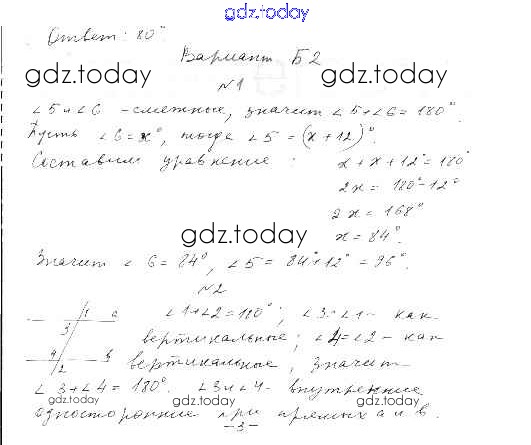 gdz.today
Ответ: 80°.
Вариант Б2
gdz.today gdz.today
№1
∠5 и ∠6 - смежные, значит ∠5+∠6=180°.
Пусть ∠6=x°, тогда ∠5=(x+12)°.
Составим уравнение: x+x+12°=180°
2x=180°-12°
2x=168°
gdz.today
x=84°.
Значит ∠6=84°, ∠5=84°+12°=96°.
№2
1 a
3
4 b
2
∠1+∠2=180°; ∠3=∠1 - как
вертикальные; ∠4=∠2 - как
вертикальные, значит
∠3+∠4=180°. ∠3 и ∠4 - внутренние
gdz.today gdz.today gdz.today
односторонние при прямых a и в.
-3-